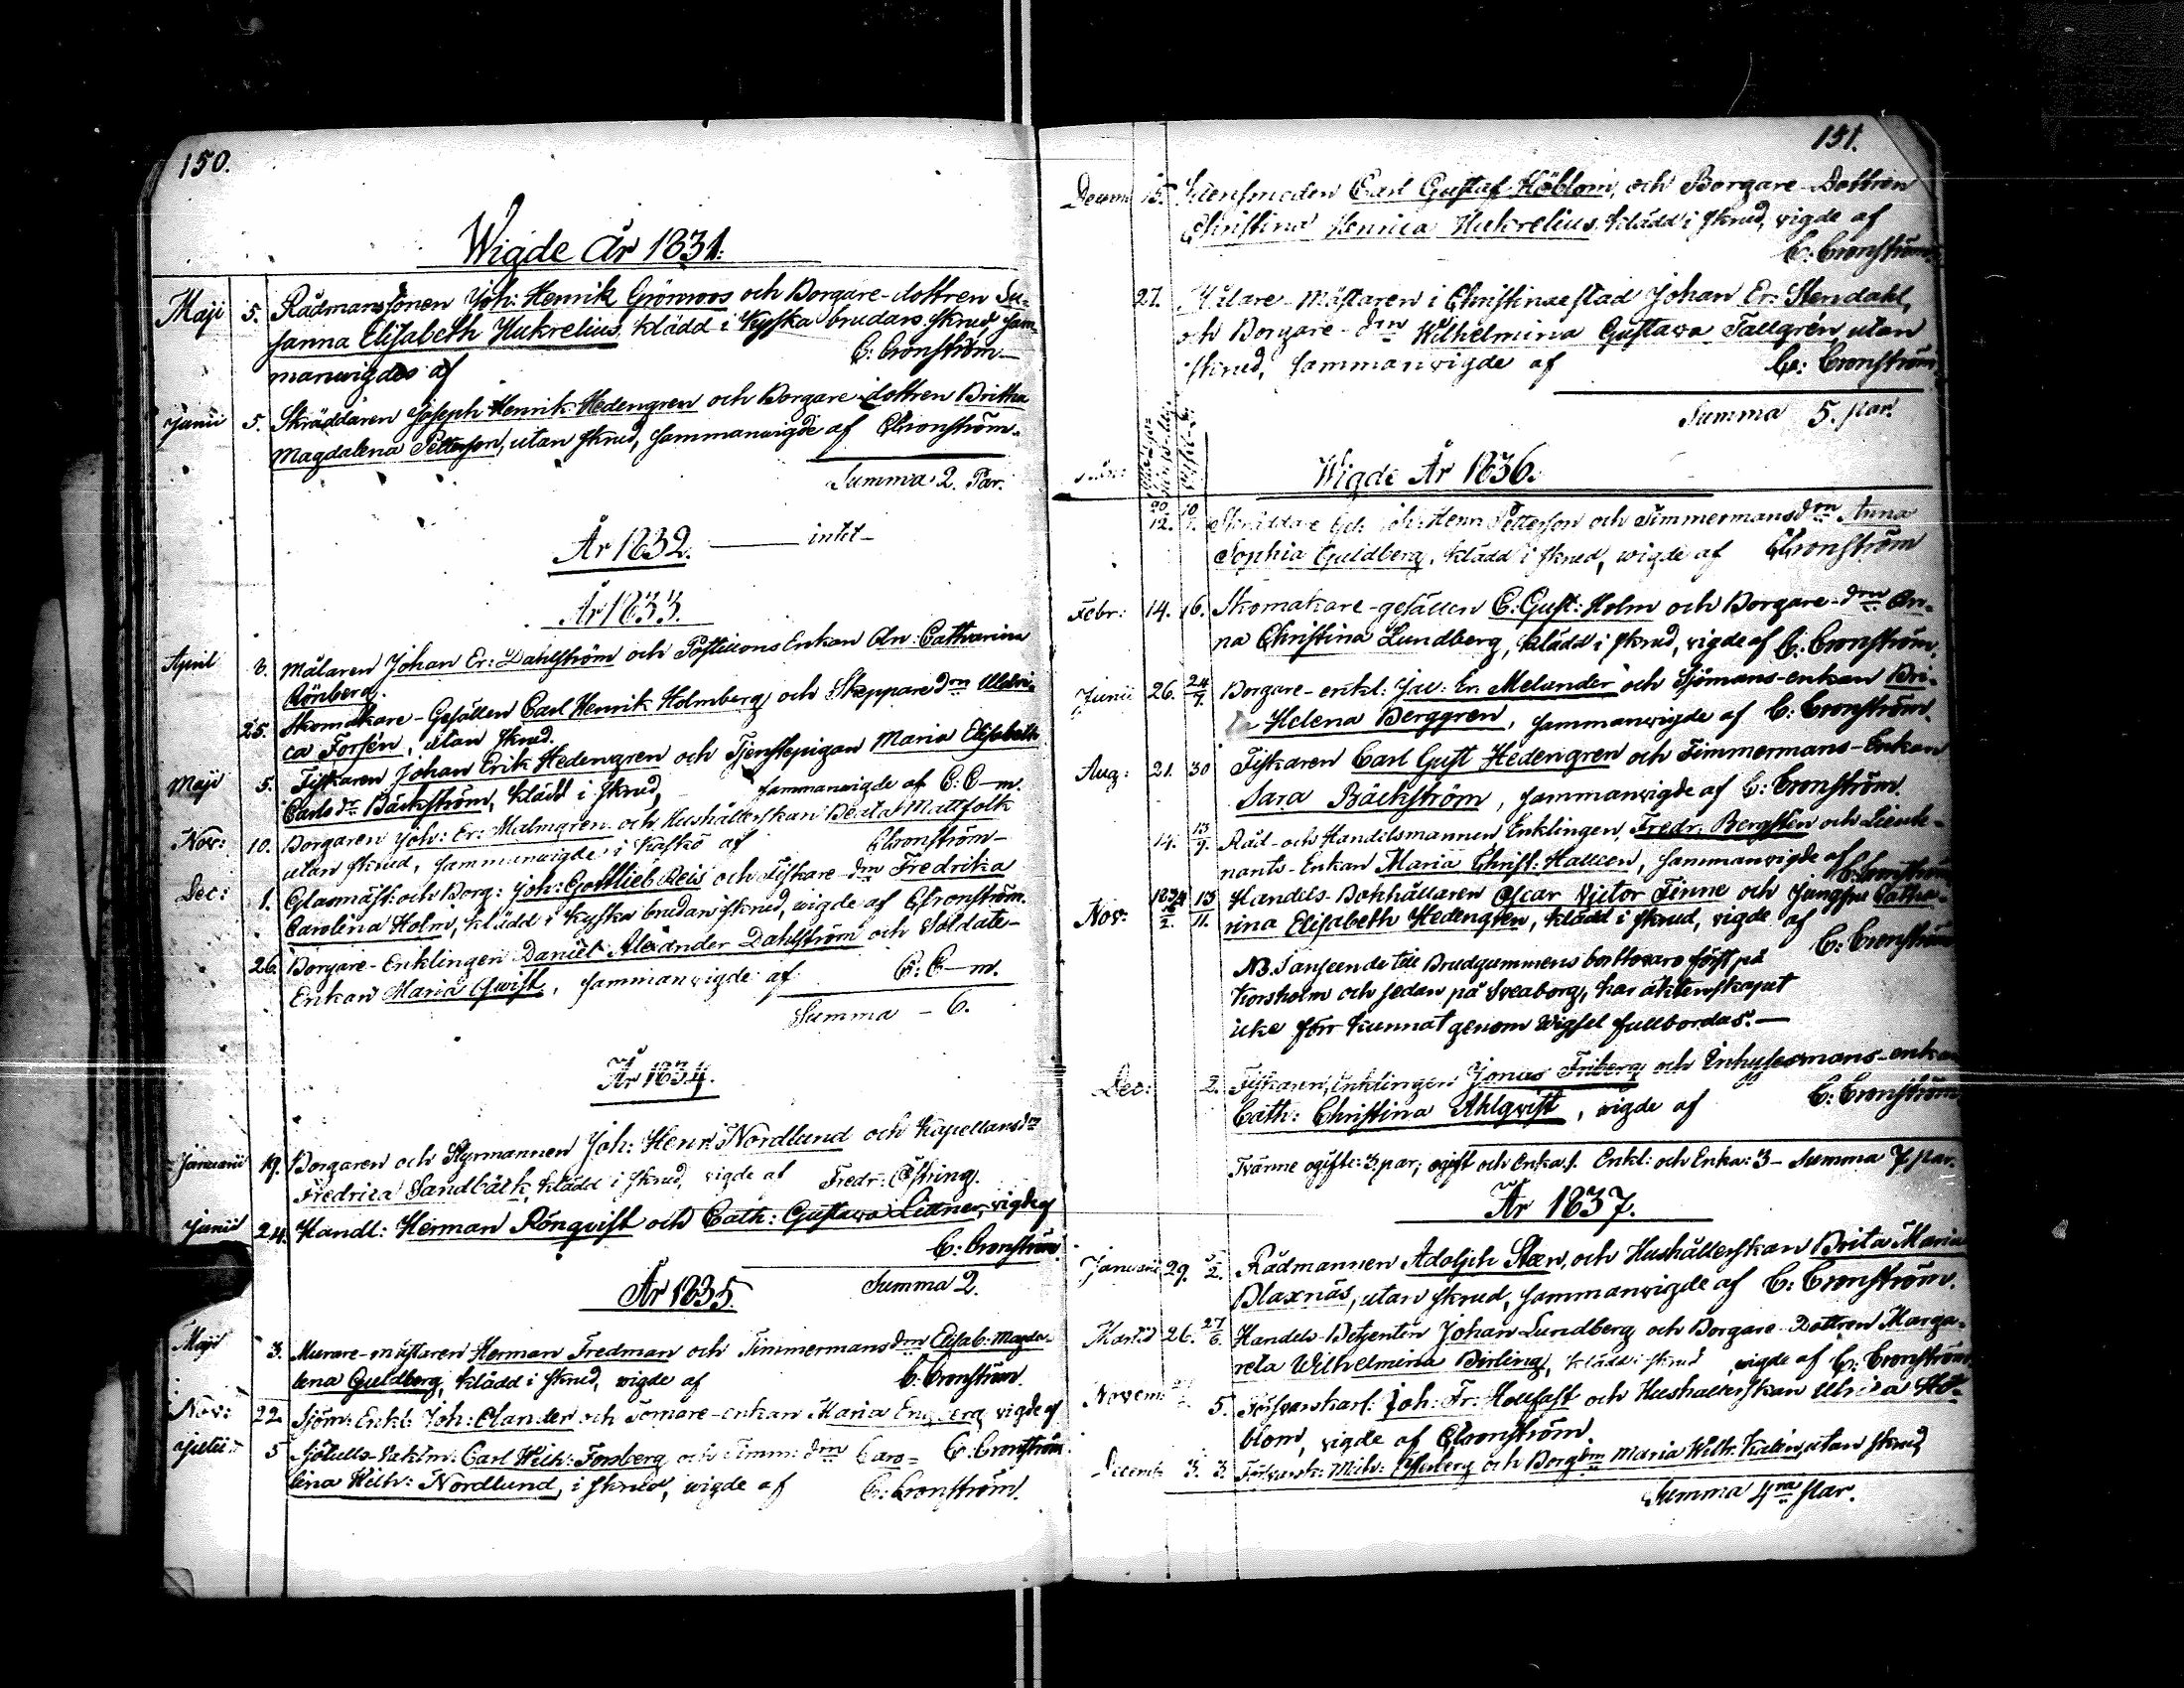 150.
Wigde År 1831.
Maji 5. Rådmanssonen Joh: Henrik Grönroos och Borgare-dottren Su-
sanna Elisabeth Hukrelius, klädd i kyska brudars skrud, sam-
manwigdes af C: Cronström
Junii 5. Skräddaren Joseph Henrik Hedengren och Borgare dottren Britha
Magdalena Petterson, utan skrud, sammanwigde af CCronström.
Summa 2. Par.
År 1832. intet
År 1833.
April 3. Målaren Johan Er: Dahlström och Postillions Enkan An: Catharina
Rönberg.
25. Skomakare-Gesällen Carl Henrik Holmberg och Skeppare drn Ulri-
ca Forsén, utan skrud.
Maji 5. Fiskaren Johan Erik Hedengren och Tjenstepigan Maria Elisabeth
Carlsdr Bäckström, klädd i skrud, sammanwigde af C: C-m.
Nov: 10. Borgaren Joh: Er: Malmgren och Hushållerskan Beata Mattfolk
utan skrud, sammanwigde i Kaskö af CCronström
Dec: 1. Glasmäst: och Borg: Joh: Gottlieb Reis och Fiskare drn Fredrika
Carolina Holm, klädd i kyska brudars skrud, wigde af CCronström.
26. Borgare-Enklingen Daniel Alexander Dahlström och Soldats-
Enkan Maria Qwist, sammanwigde af C: C-m.
Summa - 6.
År 1834.
Januarii 19. Borgaren och Styrmannen Joh: Henr: Nordlund och Kapellansdrn
Fredrica Sandbäck, klädd i skrud, wigde af Fredr: Östring.
Junii 24. Handl: Herman Rönqvist och Cath: Gustava Littner, wigde af
C: Cronström
Summa 2.
År 1835.
Maji 3. Murare-mästaren Herman Fredman och Timmermansdrn Elisab: Magda-
lena Guldberg, klädd i skrud, wigde af C: Cronström.
Nov: 22. Sjöm: Enkl: Joh: Elander och enkan Maria Engberg wigde af
C: Cronström.
Julii 5 Carl Wilh: Forsberg och Timm: drn Caro-
lina Wilh: Nordlund, i skrud, wigde af C: Cronström.
151.
Decem 15. Carl Gustaf Höblom, och Borgare-Dottren
Christina Henrica Hukrelius klädd i skrud, wigde af
C: Cronström.
27. Målare-Mästaren i Christinaestad Johan Er: Stendahl,
och Borgare-drn Wilhelmina Gustava Tallgrén, utan
skrud, sammanwigde af C: Cronström
Summa 5. par.
Wigde År 1836.
Joh: Henr: Petterson och Timmermansdrn Anna
Sophia Guldberg, klädd i skrud, wigde af CCronström
Febr: 14. 16. Skomakare-gesällen C: Gust: Holm och Borgare-drn An-
na Christina Lundberg, klädd i skrud, wigde af C: Cronström.
Junii 26. 24/7 Borgare-enkl: Jac: Er: Melander och Sjömans-enkan Bri-
Helena Berggren, sammanwigde af C: Cronström.
Aug: 21. 30 Fiskaren Carl Gust Hedengren och Timmermans-Enkan
Sara Bäckström, sammanwigde af C: Cronström.
14. 13/9. Råd- och Handelsmannen Enklingen Fredr: Bergstén och Lieute-
nants-Enkan Maria Christ: Halleen, sammanwigde af
C: Cronström
Nov: 1834 13/11. Handels-Bokhållaren Oscar Victor Finne och Jungfru Catha-
rina Elisabeth Hedengren, klädd i skrud, wigde af
C: Cronström
NB. I anseende till Brudgummens bortovaro först på
Korsholm och sedan på Sveaborg, har äktenskapet
icke förr kunnat genom Wigsel fullbordas.
Dec: 2. Fiskaren, Enklingen Jonas Friberg och Inhysesmans-enkan
Cath: Christina Ahlqvist, wigde af C: Cronström
Tvänne ogifte: 3. par; ogift och Enka 1. Enkl: och Enka: 3 - Summa 7. par.
År 1837.
Januarii 29. 5/2. Rådmannen Adolph Stæn, och Hushållerskan Brita Maria
Blaxnäs, utan skrud, sammanwigde af C: Cronström.
Martii 26. 27/6. Handels-Betjenten Johan Lundberg och Borgare-Dottren Marga-
reta Wilhelmina Birling, klädd i skrud, wigde af C: Cronström
Novem: 5. Försvarskarl: Joh: Fr: Hollfast och Hushållerskan Ulrica Hö-
blom, wigde af CCronström.
Decemb 3. 3. och Borgdrn Maria Wilh: Kalén, utan skrud,
Summa 4ra par.